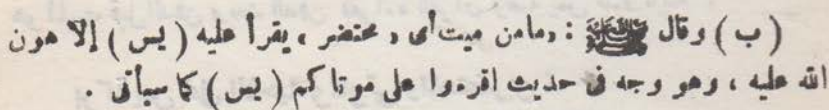 (ب) وقال ﷺ : «مامن ميت أى « محتضر » يقرأ عليه (يس) إلا هون
الله عليه ، وهو وجه فى حديث اقرءوا على موتاكم (يس) كما سيأتى .